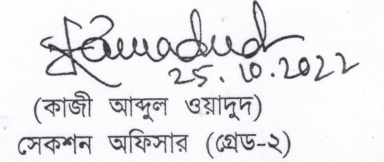 25.10.2022
(কাজী আব্দুল ওয়াদুদ)
সেকশন অফিসার (গ্রেড-২)